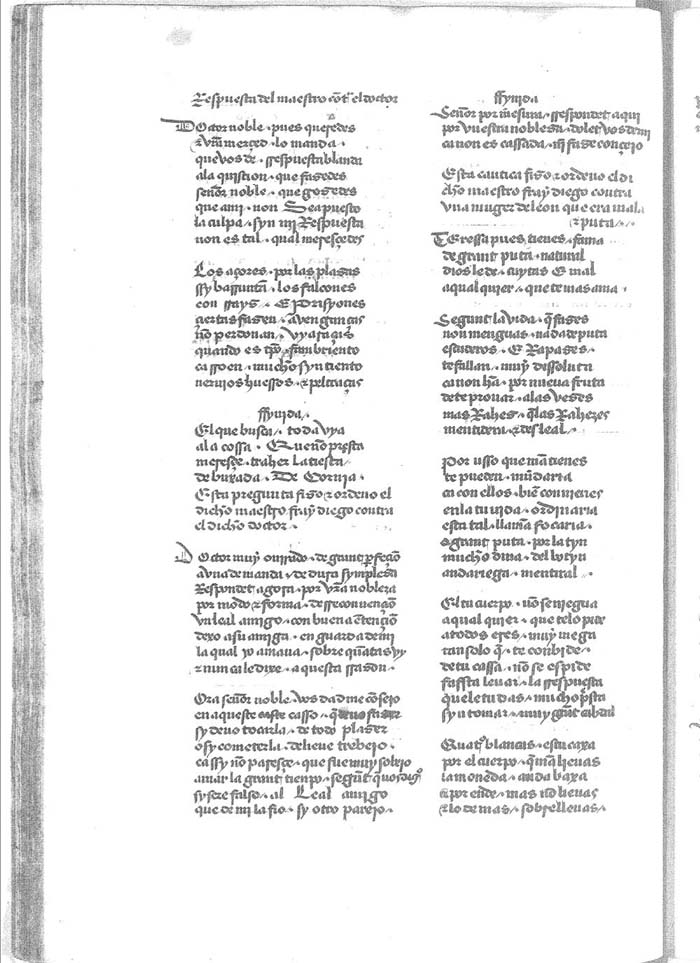 Respuesta del maestro cõt̃ el doctor
Doctor noble · pues queredes
& vr̃a merçed · lo manda ·
que vos de · rrespuesta blanda
a la quistion · que fasedes
señor noble · que gosedes
que a mi · non Sea puesto
la culpa · syn mi Respuesta
non es tal · qual meresçedes
Los açores · por las plasas
con · E Prisyones
çiertas fasen ·
nõ perdonan ·
quando es tp̃o · fambriento
caçoen · mucho syn tiento
nervios huessos · & pelraças
ffynida ·
El que busca · toda vya
a la cossa · Que nõ presta
meresçe · traher la tiesta
de buxada · De Cornia ·
Esta pregunta fiso & ordeno el
dicho maestro fray diego contra
el dicho doctor ·
Doctor muy onrrado · de grant perfeçiõ
a vna demanda · de dura symplesa
Respondet agora · por vr̃a noblesa
por modo & forma · de rreconvençiõ
Vn leal amigo · con buena ẽtençiõ
dexo a su amiga · en guarda de mi
la qual yo amava · sobre quãtas vy
& nunca le dixe · aquesta rrason ·
Ora señor noble · vos dad me cõsejo
en aqueste caso ·
sy devo tocarla · de todo plaser
o sy cometerla · de lieve trebejo ·
ca ssy nõ paresçe · que fue muy sobejo
amar la grant tienpo · segunt
sy sere falso · al Leal amigo
que de mi la fio · sy otro parejo ·
ffynida
Señor por mesura · rrespondet aqui
por vuestra noblesa · dolet vos de mi
ca non es cassada · nĩ fase conçejo
Esta cantica fiso & ordeno el di
cho maestro fray diego contra
vna muger de leon que era mala
& puta ·
Teressa pues tienes · fama
de grant puta · natural
dios le de · cuytas E mal
a qual quier · que te mas ama ·
Segunt la vida · q̃ fases
non menguas · nada de puta
escuderos · E Rapases ·
te fallan · muy dissoluta
ca non hã · por nueva fruta
de te provar · a las veses
mas Rahes · q̃ las Raheses
mentidera · & desleal ·
Por usso que mãtienes
te pueden · mũdaria
ca con ellos · biẽ convienes
en la tu vida · ordinaria
esta tal · llamã focaria ·
& grant puta · por latyn
mucho dina · del botyn
andariega · mentiral ·
El tu cuerpo · nõ se niegua
a qual quier · que te lo pide
a todos eres · muy mega
tan solo q̃ · te conbide ·
de tu cassa · nõ se espide
fassta levar · la rrespuesta
que le tu das · mucho p̃sta
syn tomar · muy grñt
Quatº blancas · es tu caxa
por el cuerpo · lievas
la moneda · anda baxa
& por ende · mas nõ lievas
& lo de mas · sobrellevas ·